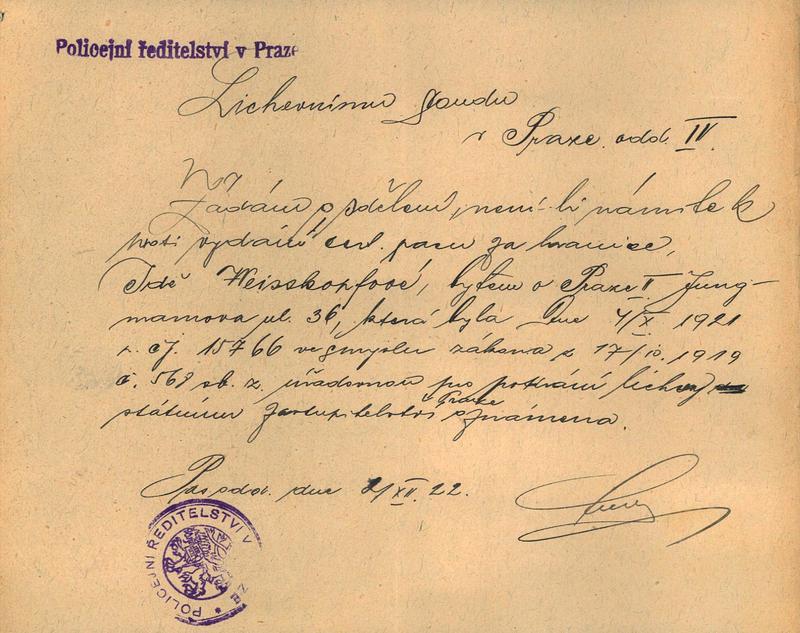 Policejní ředitelství v Praze
Lichevnímu soudu
v Praze odd. IV.
Žádám o sdělení, není-li námitek
proti vydání cest. pasu za hranice,
Idě Weisskopfové, bytem v Praze II Jung-
mannova ul. 36, která byla dne 4/X. 1921
č. 15766 ve smyslu zákona z 17/10. 1919
č. 568 sb. z. úřadovnou pro potírání lichvy
státnímu zastupitelství v Praze oznámena.
Pas. odd. dne 2/XII. 22.
POLICEJNÍ ŘEDITELSTVÍ V ZE